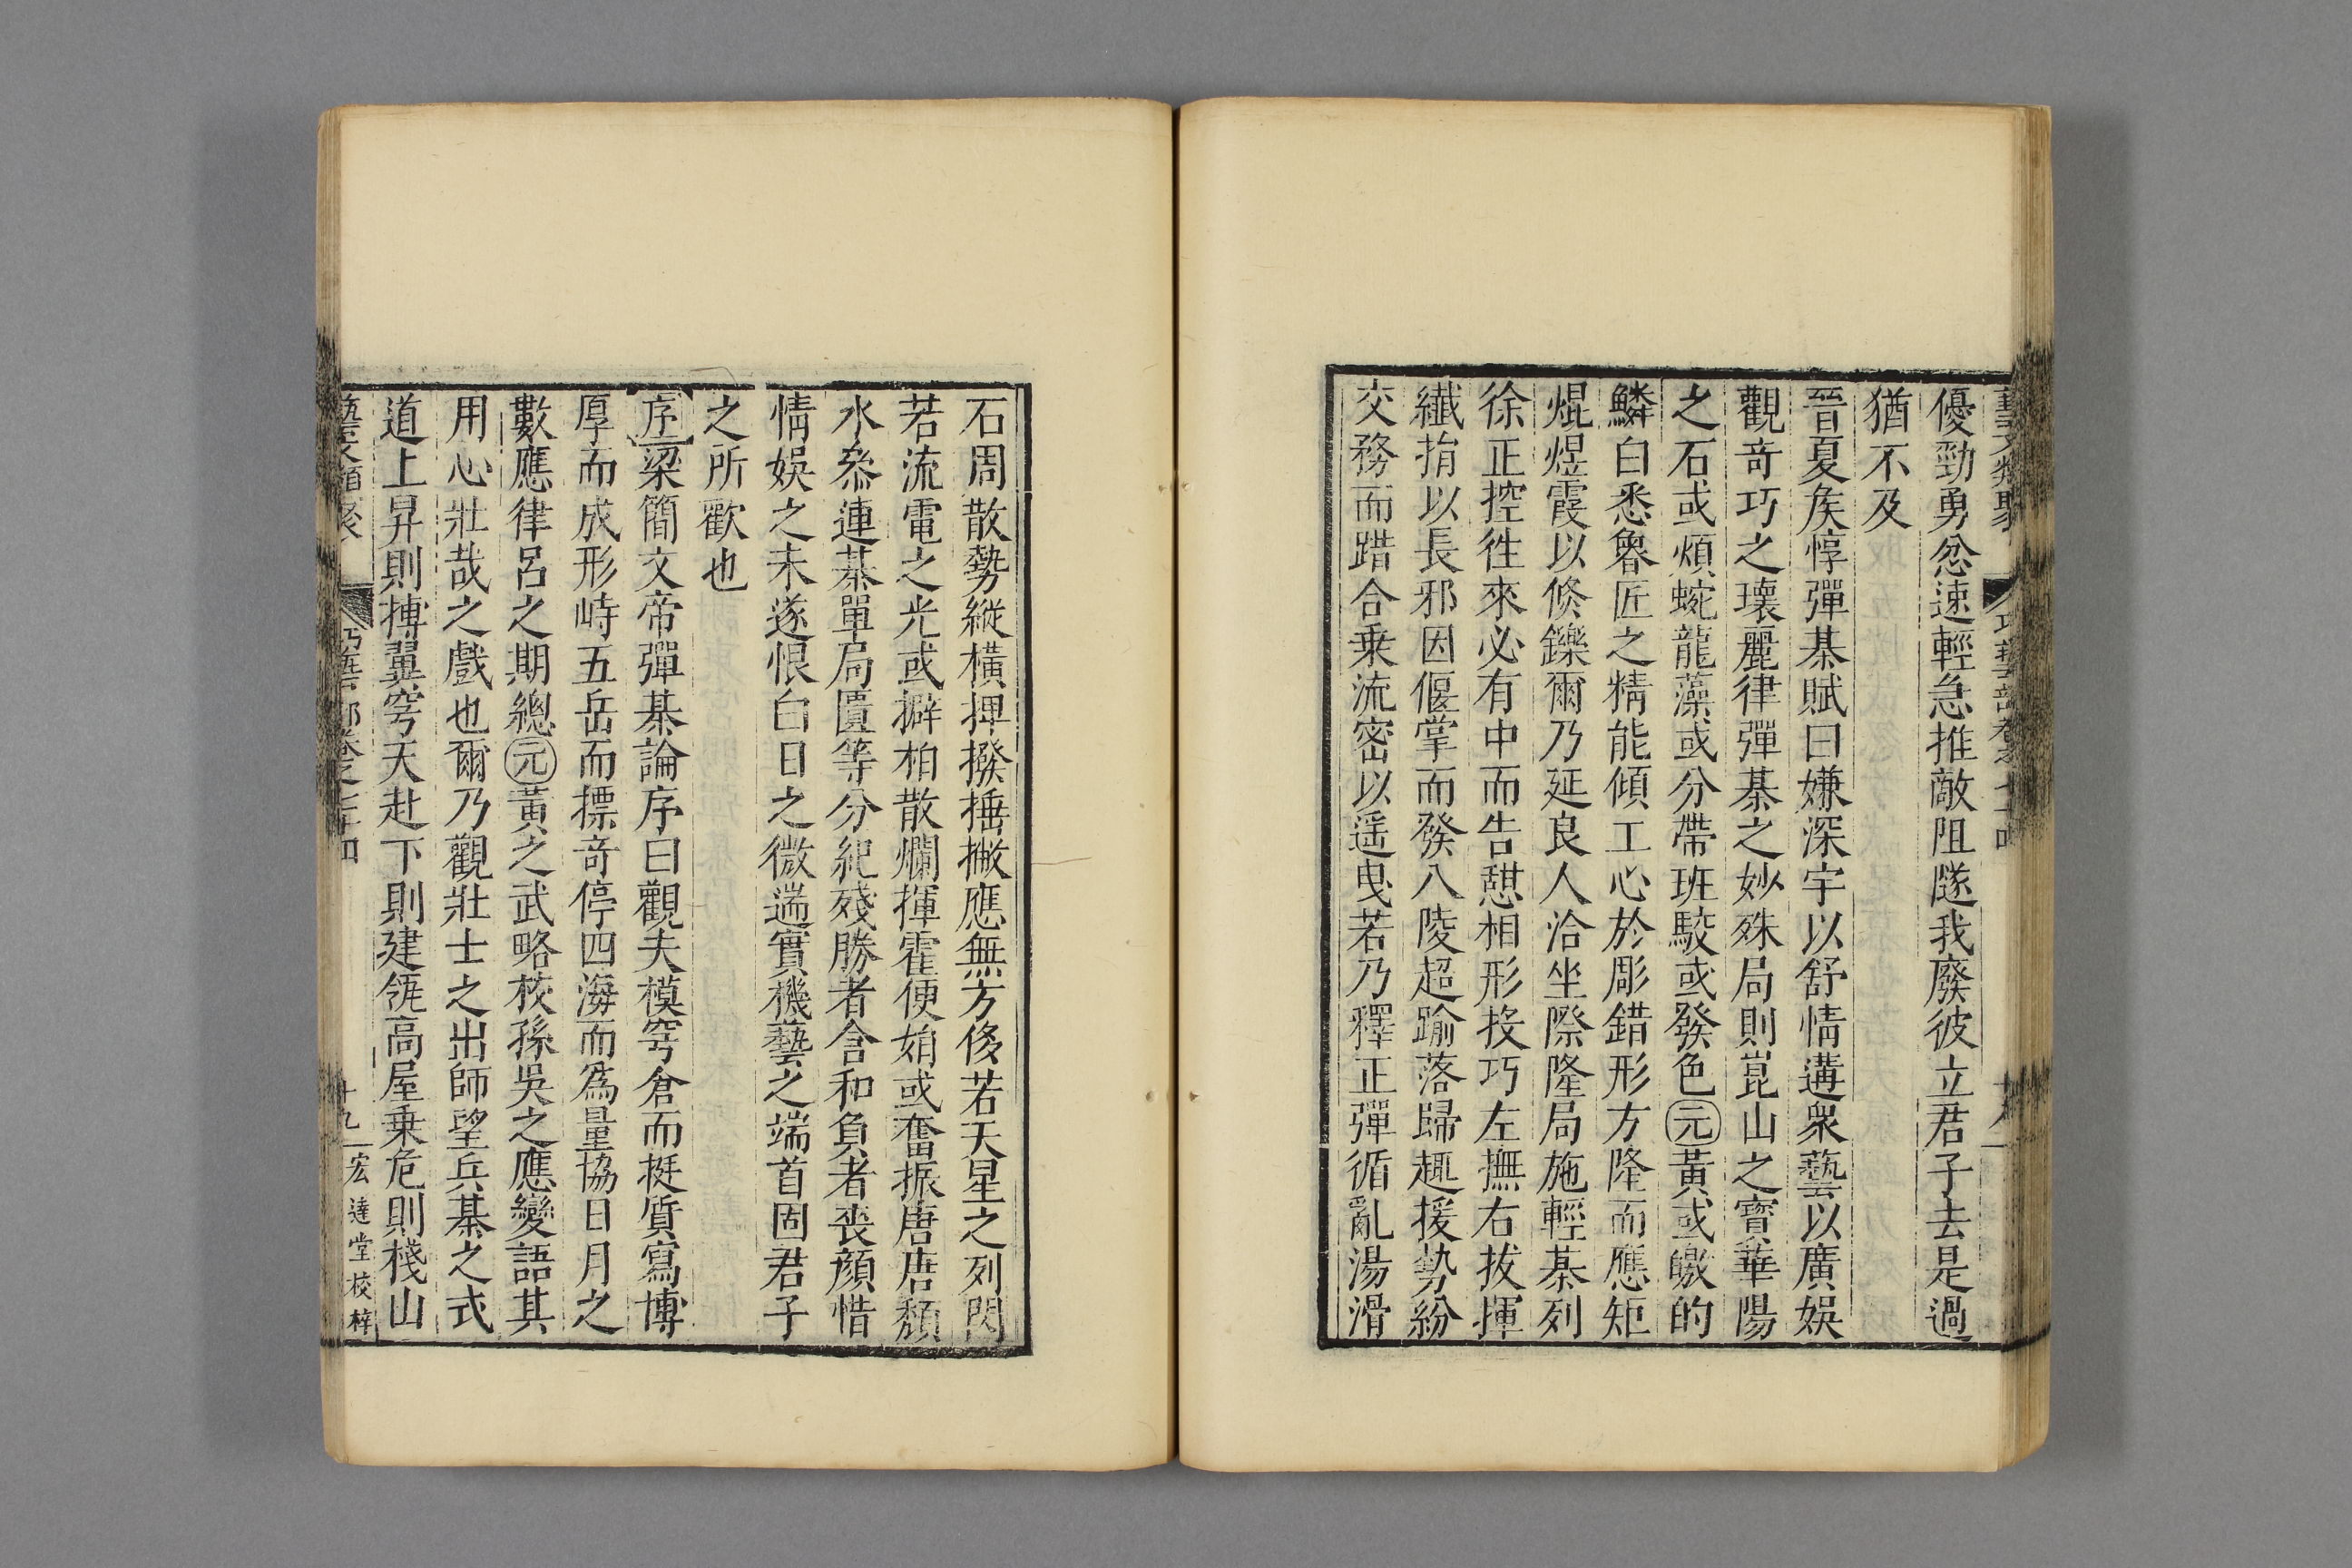 優勁勇忿速輕急推敵阻隧我廢彼立君子去是過
猶不及
晉夏矦惇彈棊賦曰嫌深宇以舒情遘衆藝以廣娯
觀奇巧之瓌麗律彈棊之妙殊局則崑山之寳華陽
之石或煩蛇龍藻或分帶班駮或發色元黃或皦的
鱗白悉魯匠之精能傾工心於彫錯形方隆而應矩
焜煜霞以倐鑠爾乃延良人洽坐際隆局施輕棊列
徐正控徃來必有中而告憇相形投巧左撫右拔揮
纖指以長邪因偃掌而發八陵超踰落歸趣援勢紛
交務而踖合乗流密以遥曳若乃釋正彈循亂湯滑
石周散勢縱橫捭撥捶撇應無方後若天星之列閃
若流電之光或擗柏散爛揮霍便娟或奮振唐唐頽
水叅連棊單局匱等分紀殘勝者含和負者喪顔惜
情娯之未遂恨白日之微遄實機藝之端首固君子
之所歡也
序梁簡文帝彈棊論序曰觀夫模穹倉而挺質寫博
厚而成形峙五岳而摽竒停四海而爲量協日月之
數應律呂之期總元黃之武略校孫吳之應變語其
用心壯哉之戲也爾乃觀壯士之出師望兵棊之式
道上昇則搏翼穹天赴下則建瓴高屋乗危則棧山
藝文類聚 巧藝部卷之七十四 十九 宏達堂校梓